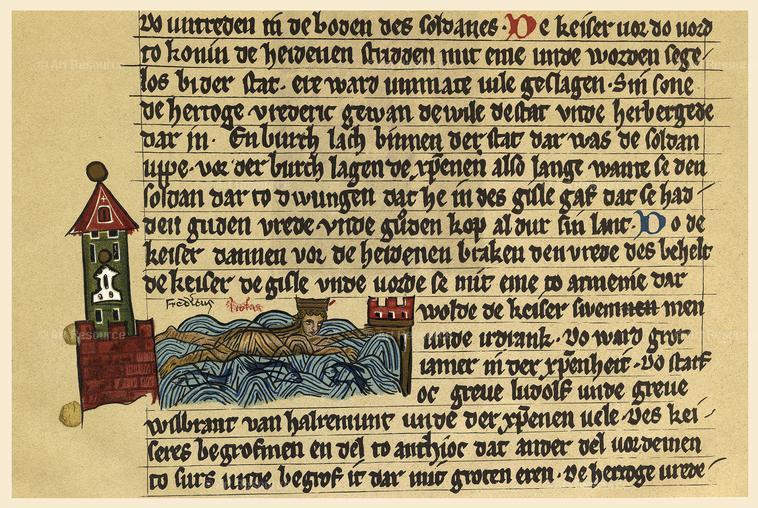 vo untreden in de boden des soldanes. De keiser vor do vord
to konin de heidenen stridden mit eme unde worden sege
los bi der stat. ere ward ummate vile geslagen. Sin sone
de hertoge vrederic gewan de wile de stat unde herbergede
dar in. En burch lach binnen der stat dar was de soldan
uppe. vor der burch lagen de xp̄enen also lange wante se den
soldan dar to dwungen dat he in des gisle gaf dat se had
den guden vrede. unde gůden kop al dur sin lant. Do de
keiser dannen vor de heidenen braken den vrede des behelt
de keiser de gisle unde vorde se mit eme to armenie dar
Fredicus
wolde de keiser swemmen
unde irdrank. Do ward grot
iamer in der xp̄enheit. Do starf
oc greve ludolf unde greve
wilbrant van halremunt unde der xp̄enen vele. Des kei
seres begrofmen en del to anthioc dat ander del vordemen
to surs unde begrof it dar mit groten eren. De hertoge vrede